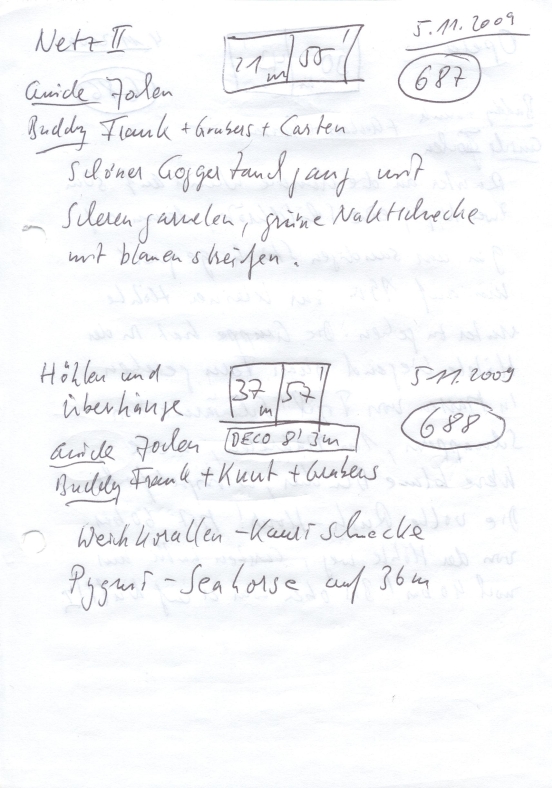 Netz II
21 m 55'
5.11.2009
687
Guide Jochen
Buddy Frank + Grubers + Carsten
Schöner Tauchgang mit
Scherengarnelen, grüne Nacktschnecke
mit blauen streifen.
Höhlen und
Überhänge
37 m 57
DECO 8' 3m
5.11.2009
688
Guide Jochen
Buddy Frank + Kunt + Grubers
Weichkorallen-Kaurischnecke
Pygmi-Seahorse auf 36m